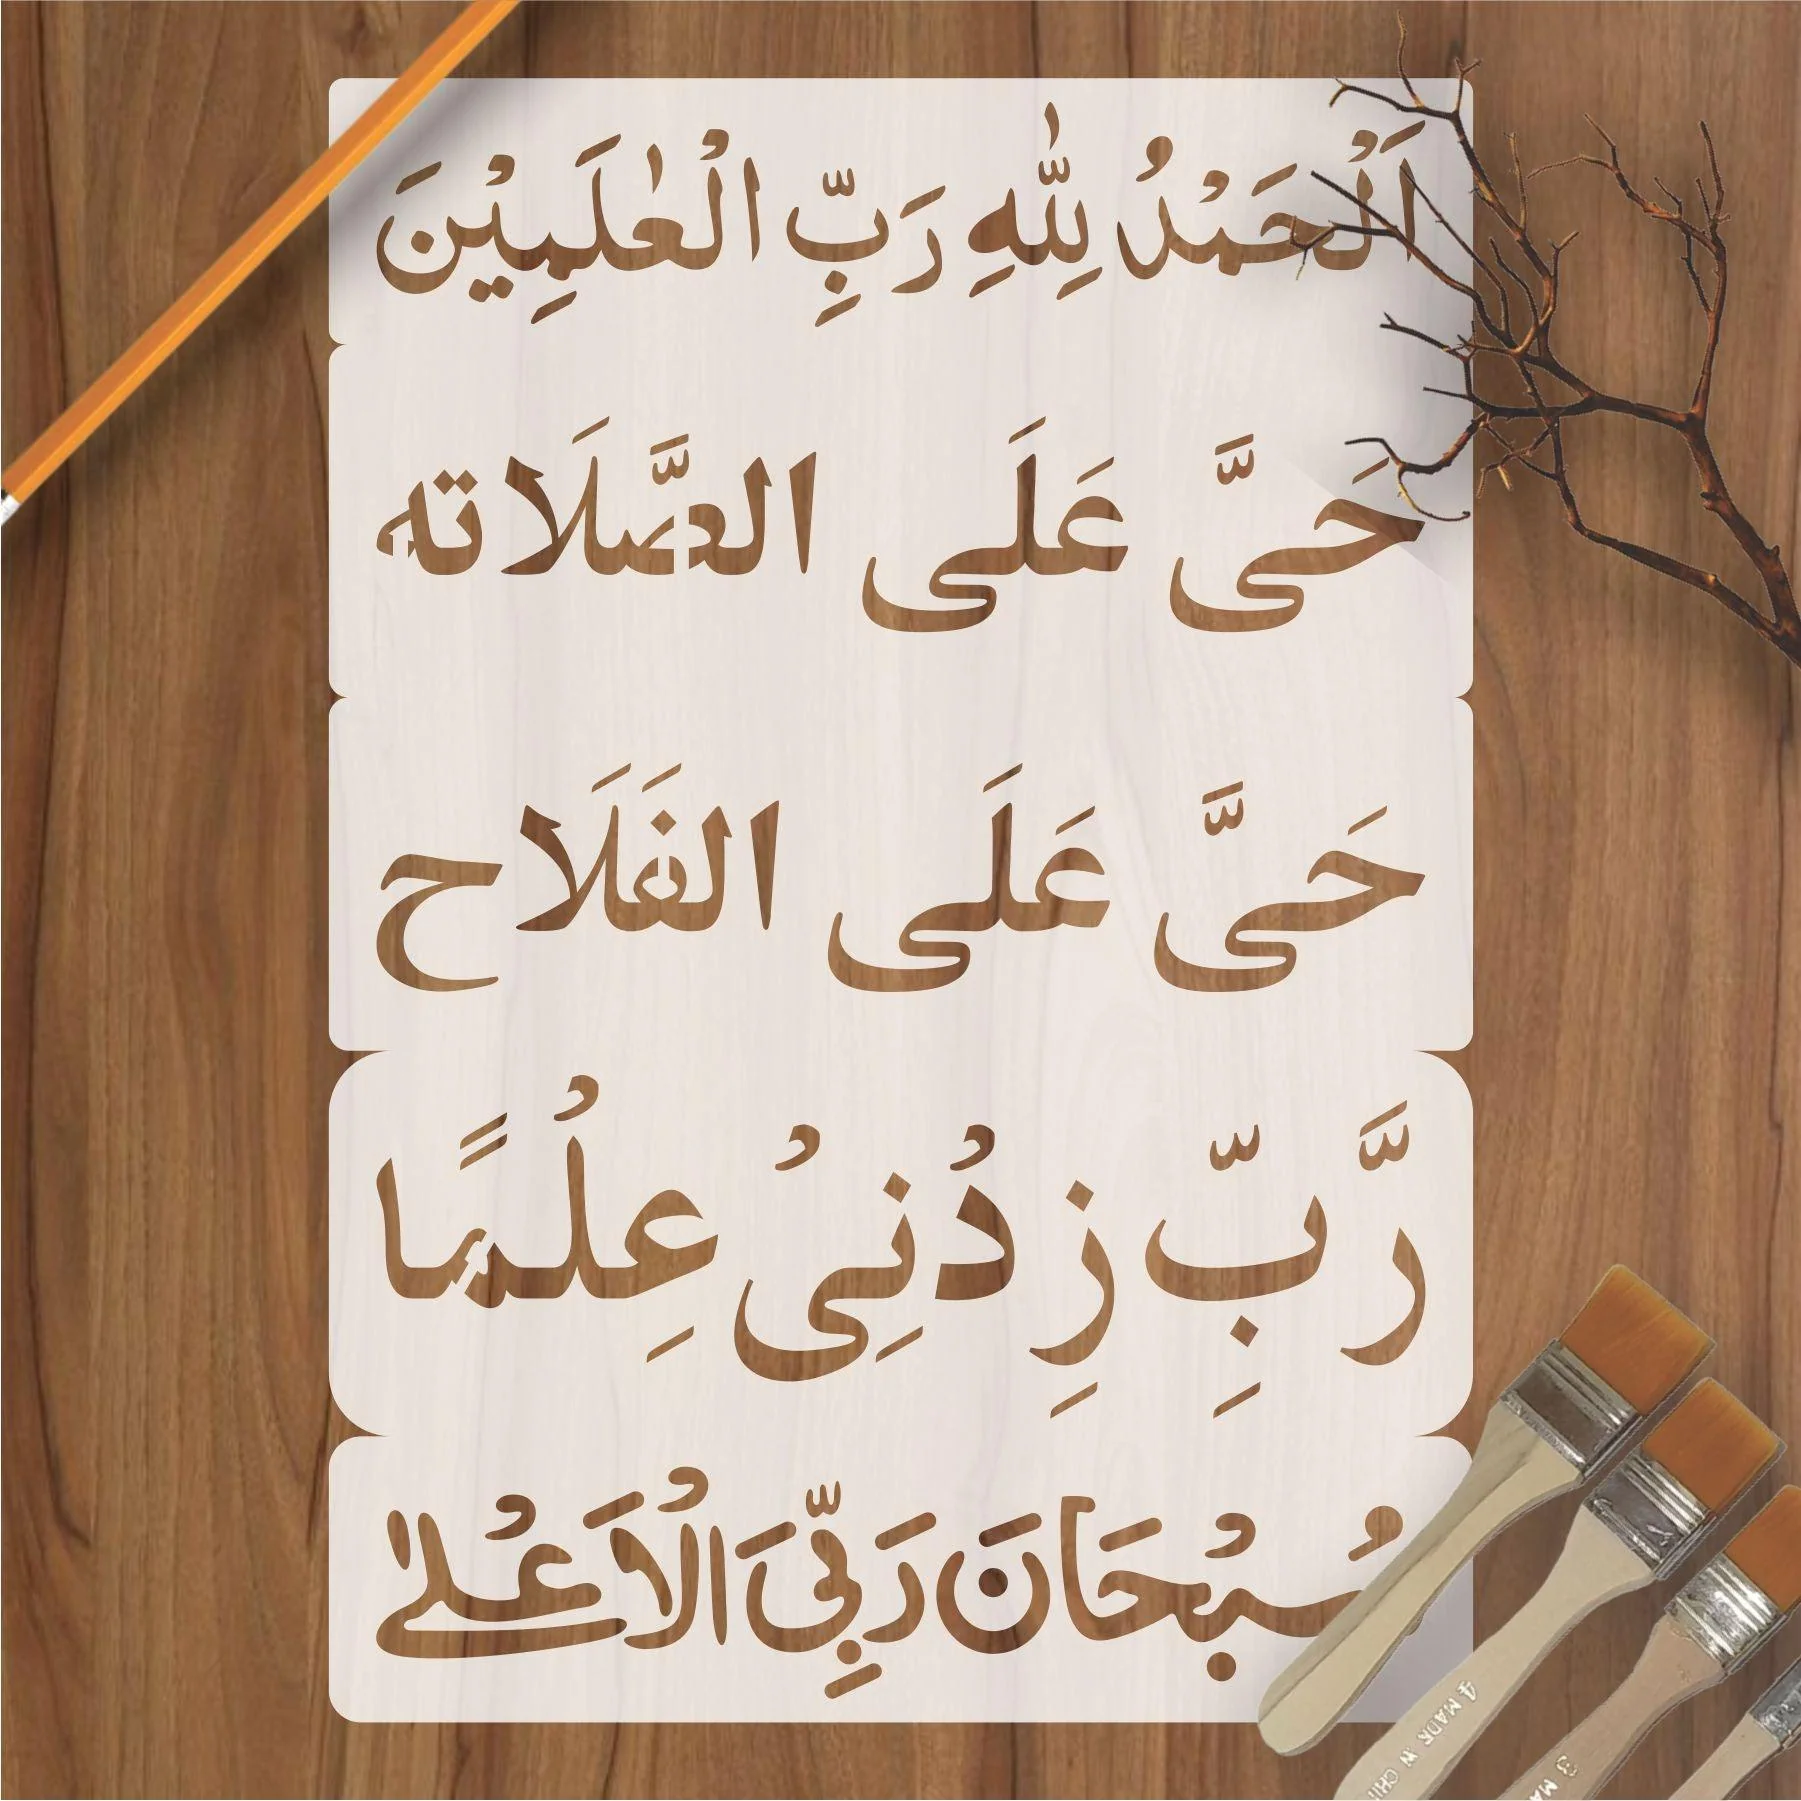 اَلْحَمْدُ لِلّٰهِ رَبِّ الْعٰلَمِيْنَ
حَیَّ عَلَی الصَّلَاته
حَیَّ عَلَی الفَلَاح
رَّبِّ زِدْنِیْ عِلْمًا
سُبْحَانَ رَبِّیَ الْاَعْلیٰ
4 MADE IN CHI
3 MA